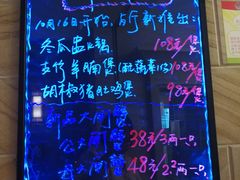 10月16日开始,后厅新推出:
冬瓜盅锅 108元/煲
支竹羊腩煲(配蔬菜1份)108元/煲
胡椒猪肚鸡煲 98元/煲
新品大闸蟹
公大闸蟹 38元/3两一只
大闸蟹 48元/2.2两一只